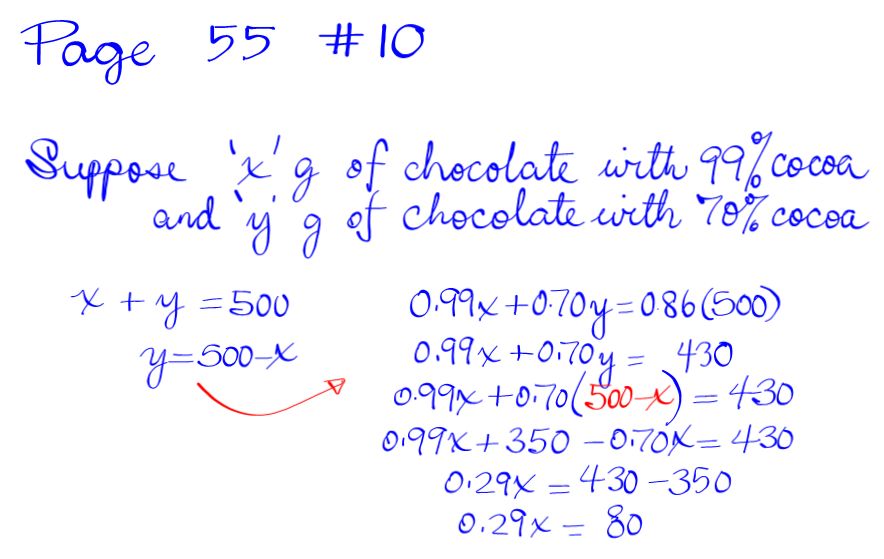 Page 55 #10
Suppose 'x' g of chocolate with 99% cocoa
and 'y' g of chocolate with 70% cocoa
x + y = 500
y = 500-x
0.99x + 0.70y = 0.86(500)
0.99x + 0.70y = 430
0.99x + 0.70(500-x) = 430
0.99x + 350 - 0.70x = 430
0.29x = 430 - 350
0.29x = 80